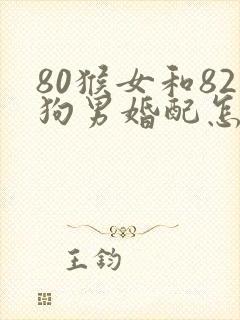 80猴女和82
狗男婚配怎
王钧